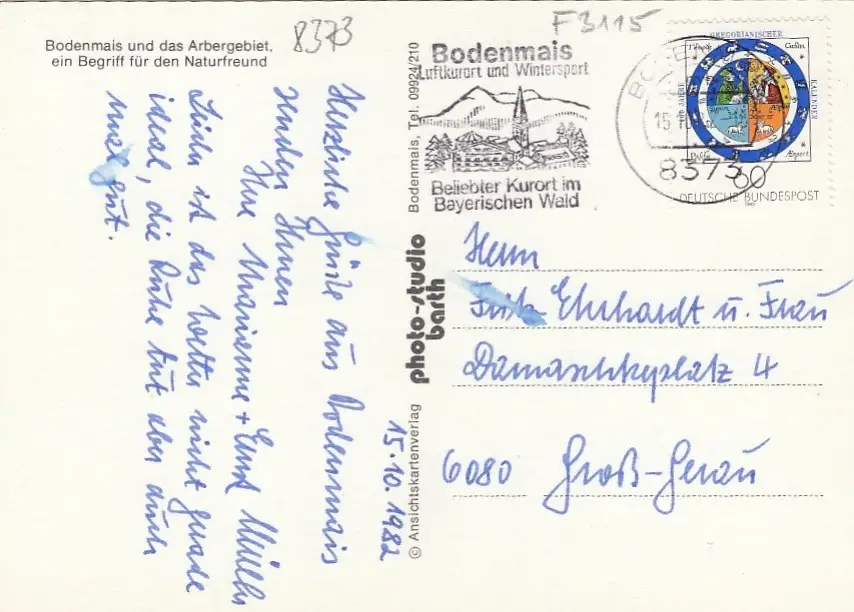 Bodenmais und das Arbergebiet,
ein Begriff für den Naturfreund
8373
F3115
15.10.1982
Herzliche Grüße aus Bodenmais
senden Ihnen
Ihre Marianne + Ernst
Leider ist das Wetter nicht gerade
ideal, die Ruhe tut aber auch
mal gut.
Bodenmais, Tel. 09924/210
photo-studio
barth
© Ansichtskartenverlag
Bodenmais
Luftkurort und Wintersport
Beliebter Kurort im
Bayerischen Wald
15
8373
GREGORIANISCHER
KALENDER
400 JAHRE
60
DEUTSCHE BUNDESPOST
Herrn
Fritz Ehrhardt u. Frau
Damaschkeplatz 4
6080 Groß-Gerau